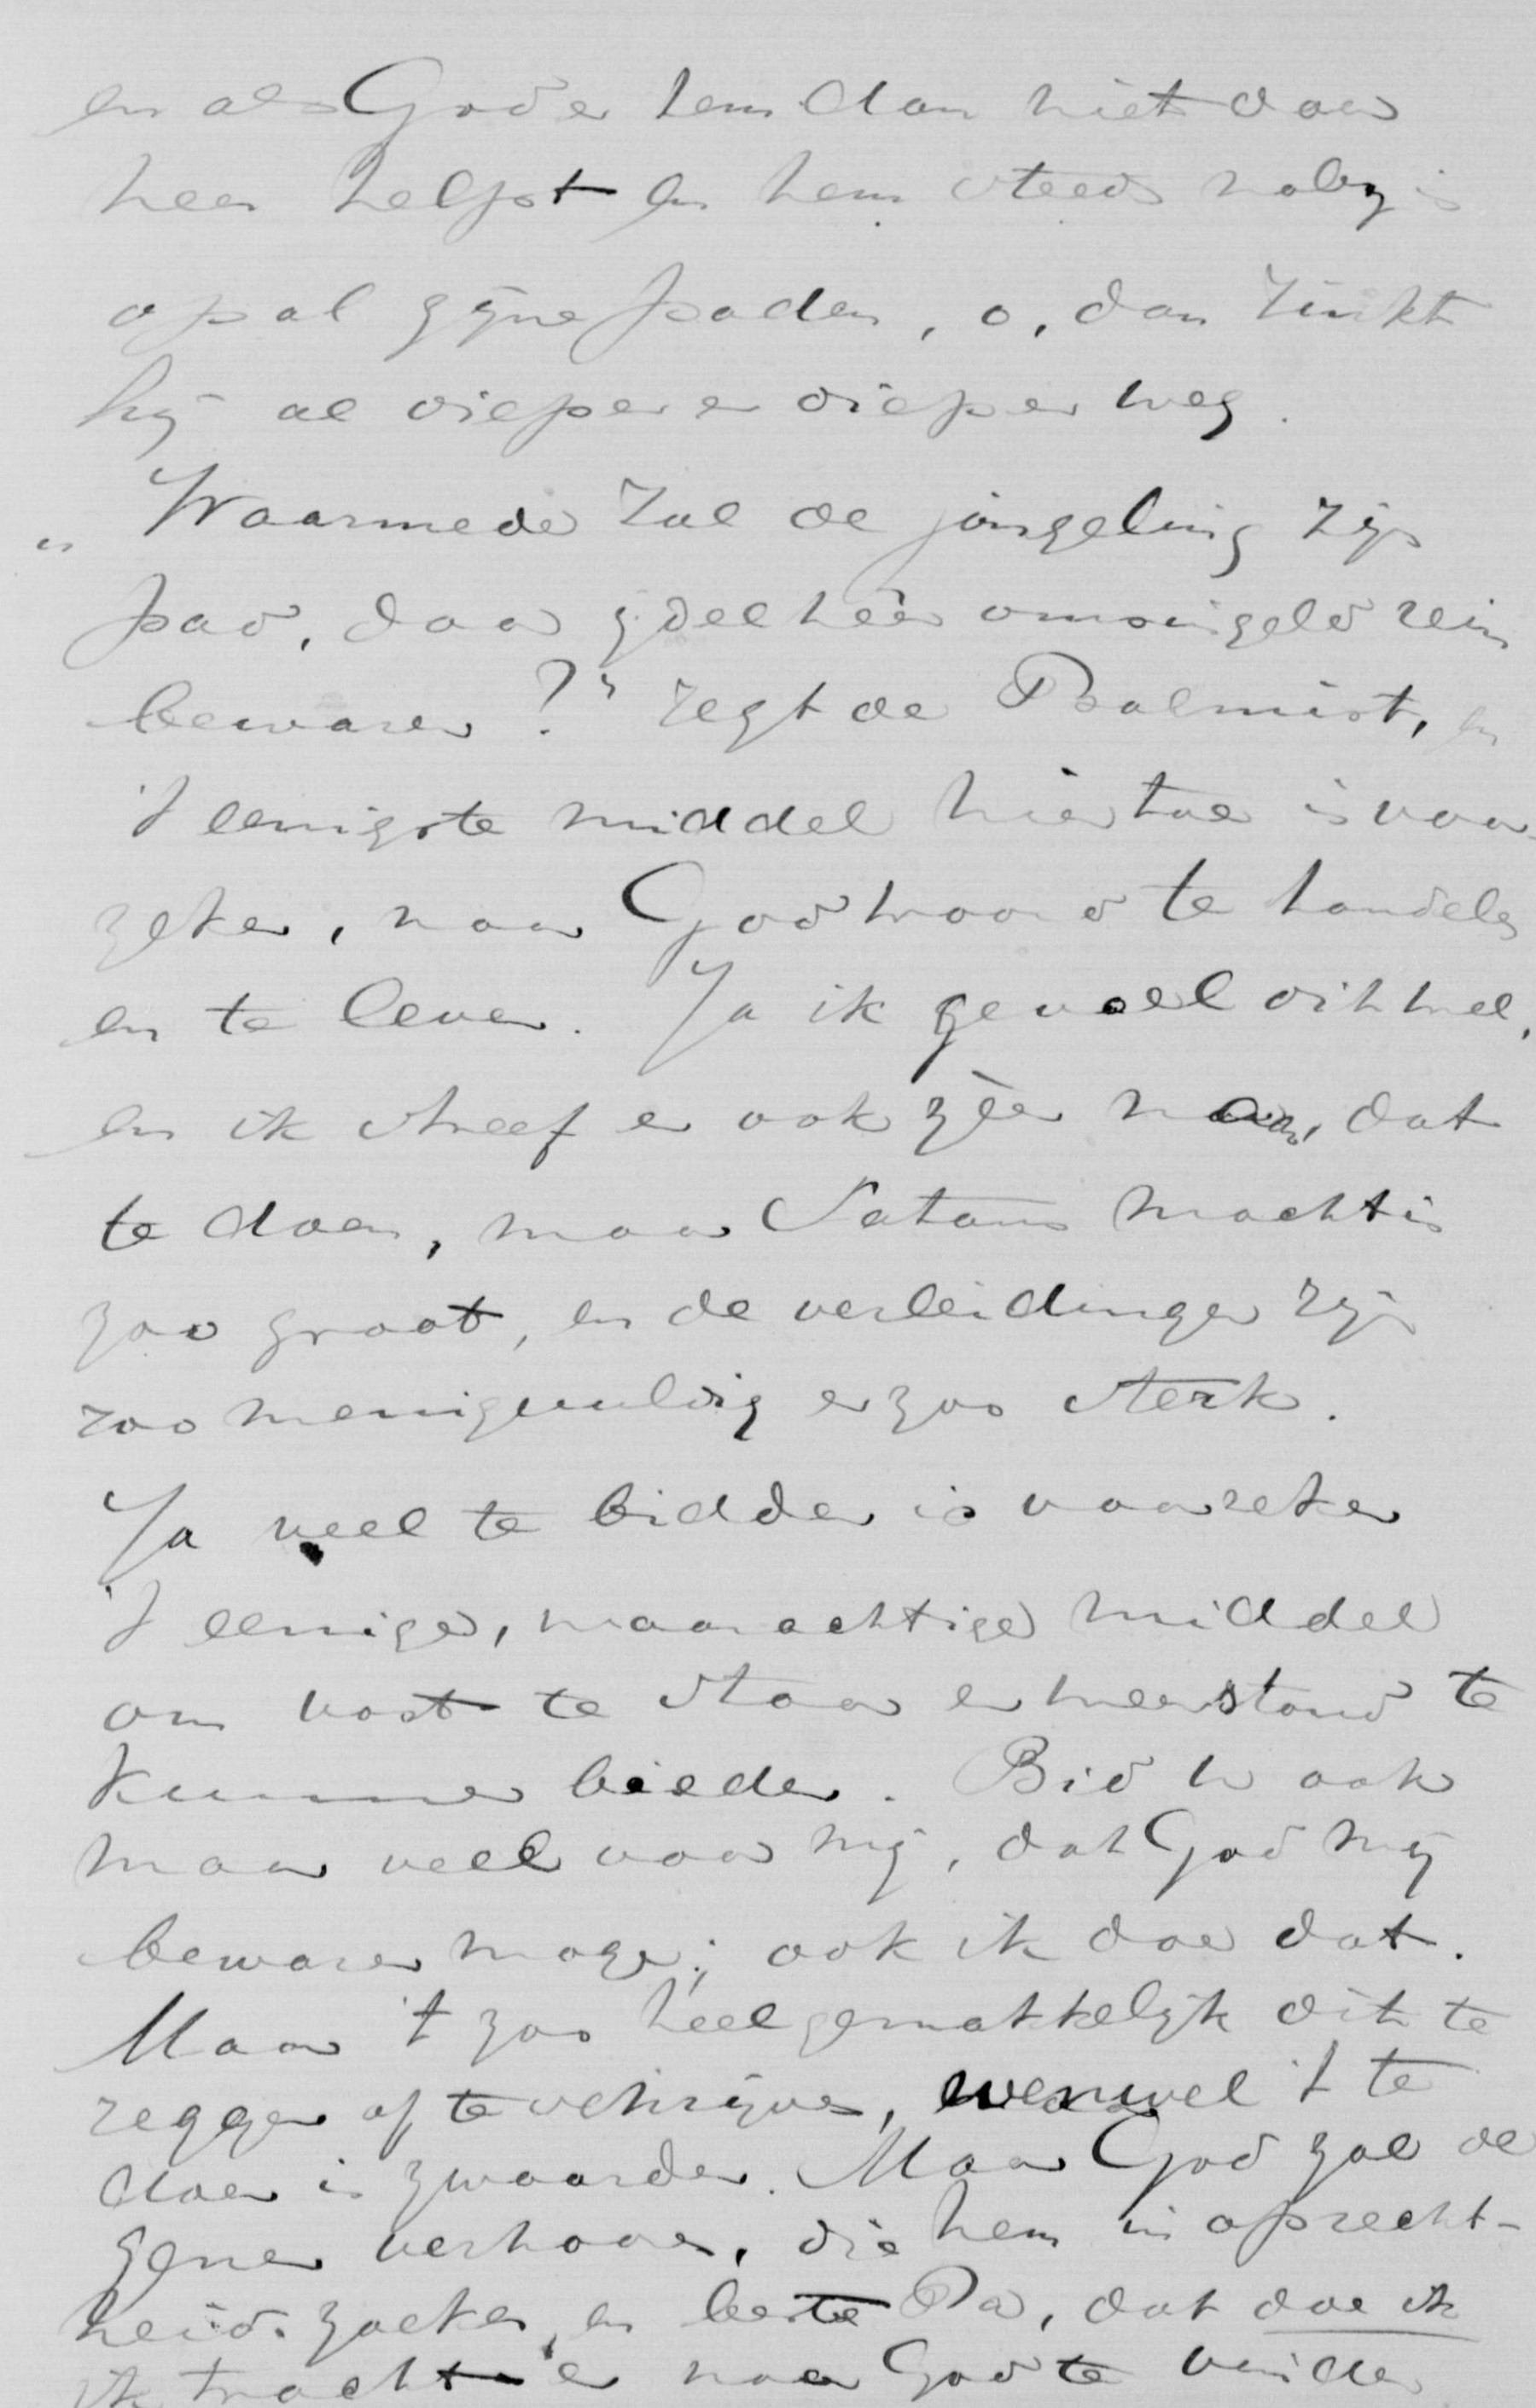 en als God er hem dan niet door
heen helpt en hem steeds nabij is
op al zijne paden, o, dan zinkt
hij al dieper en dieper weg.
„Waarmede zal de jongeling zijn
pad, door ijdelheên omsingeld rein
bewaren?" zegt de Psalmist, en
't eenigste middel hiertoe is voor-
zeker, naar Gods woord te handelen
en te leven. Ja ik gevoel dit wel,
en ik streef er ook zéér naar, dat
te doen, maar Satans macht is
zoo groot, en de verleidingen zijn
zoo menigvuldig en zoo sterk.
Ja veel te bidden is voorzeker
't eenige, waarachtige middel
om vast te staan en weerstand te
kunnen bieden. Bid U ook
maar veel voor mij, dat God mij
beware moge; ook ik doe dat.
Maar 't zoo heel gemakkelijk dit te
zeggen of te schrijven, evenwel 't te
doen is zwaarder. Maar God zal de
genen verhooren, die hem in oprecht-
heid zoeken, en beste Pa, dat doe ik
ik tracht er naar God te vinden